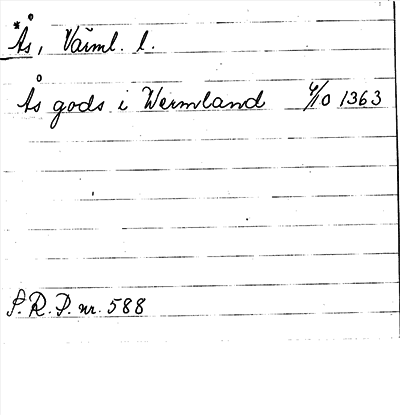 *Ås, Värml. l.
Ås gods i Wermland 4/10 1363
S.R.P. nr. 588